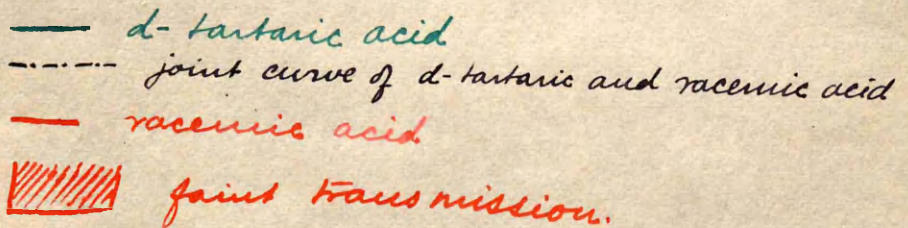 d-tartaric acid
joint curve of d-tartaric and racemic acid
racemic acid
faint transmission.